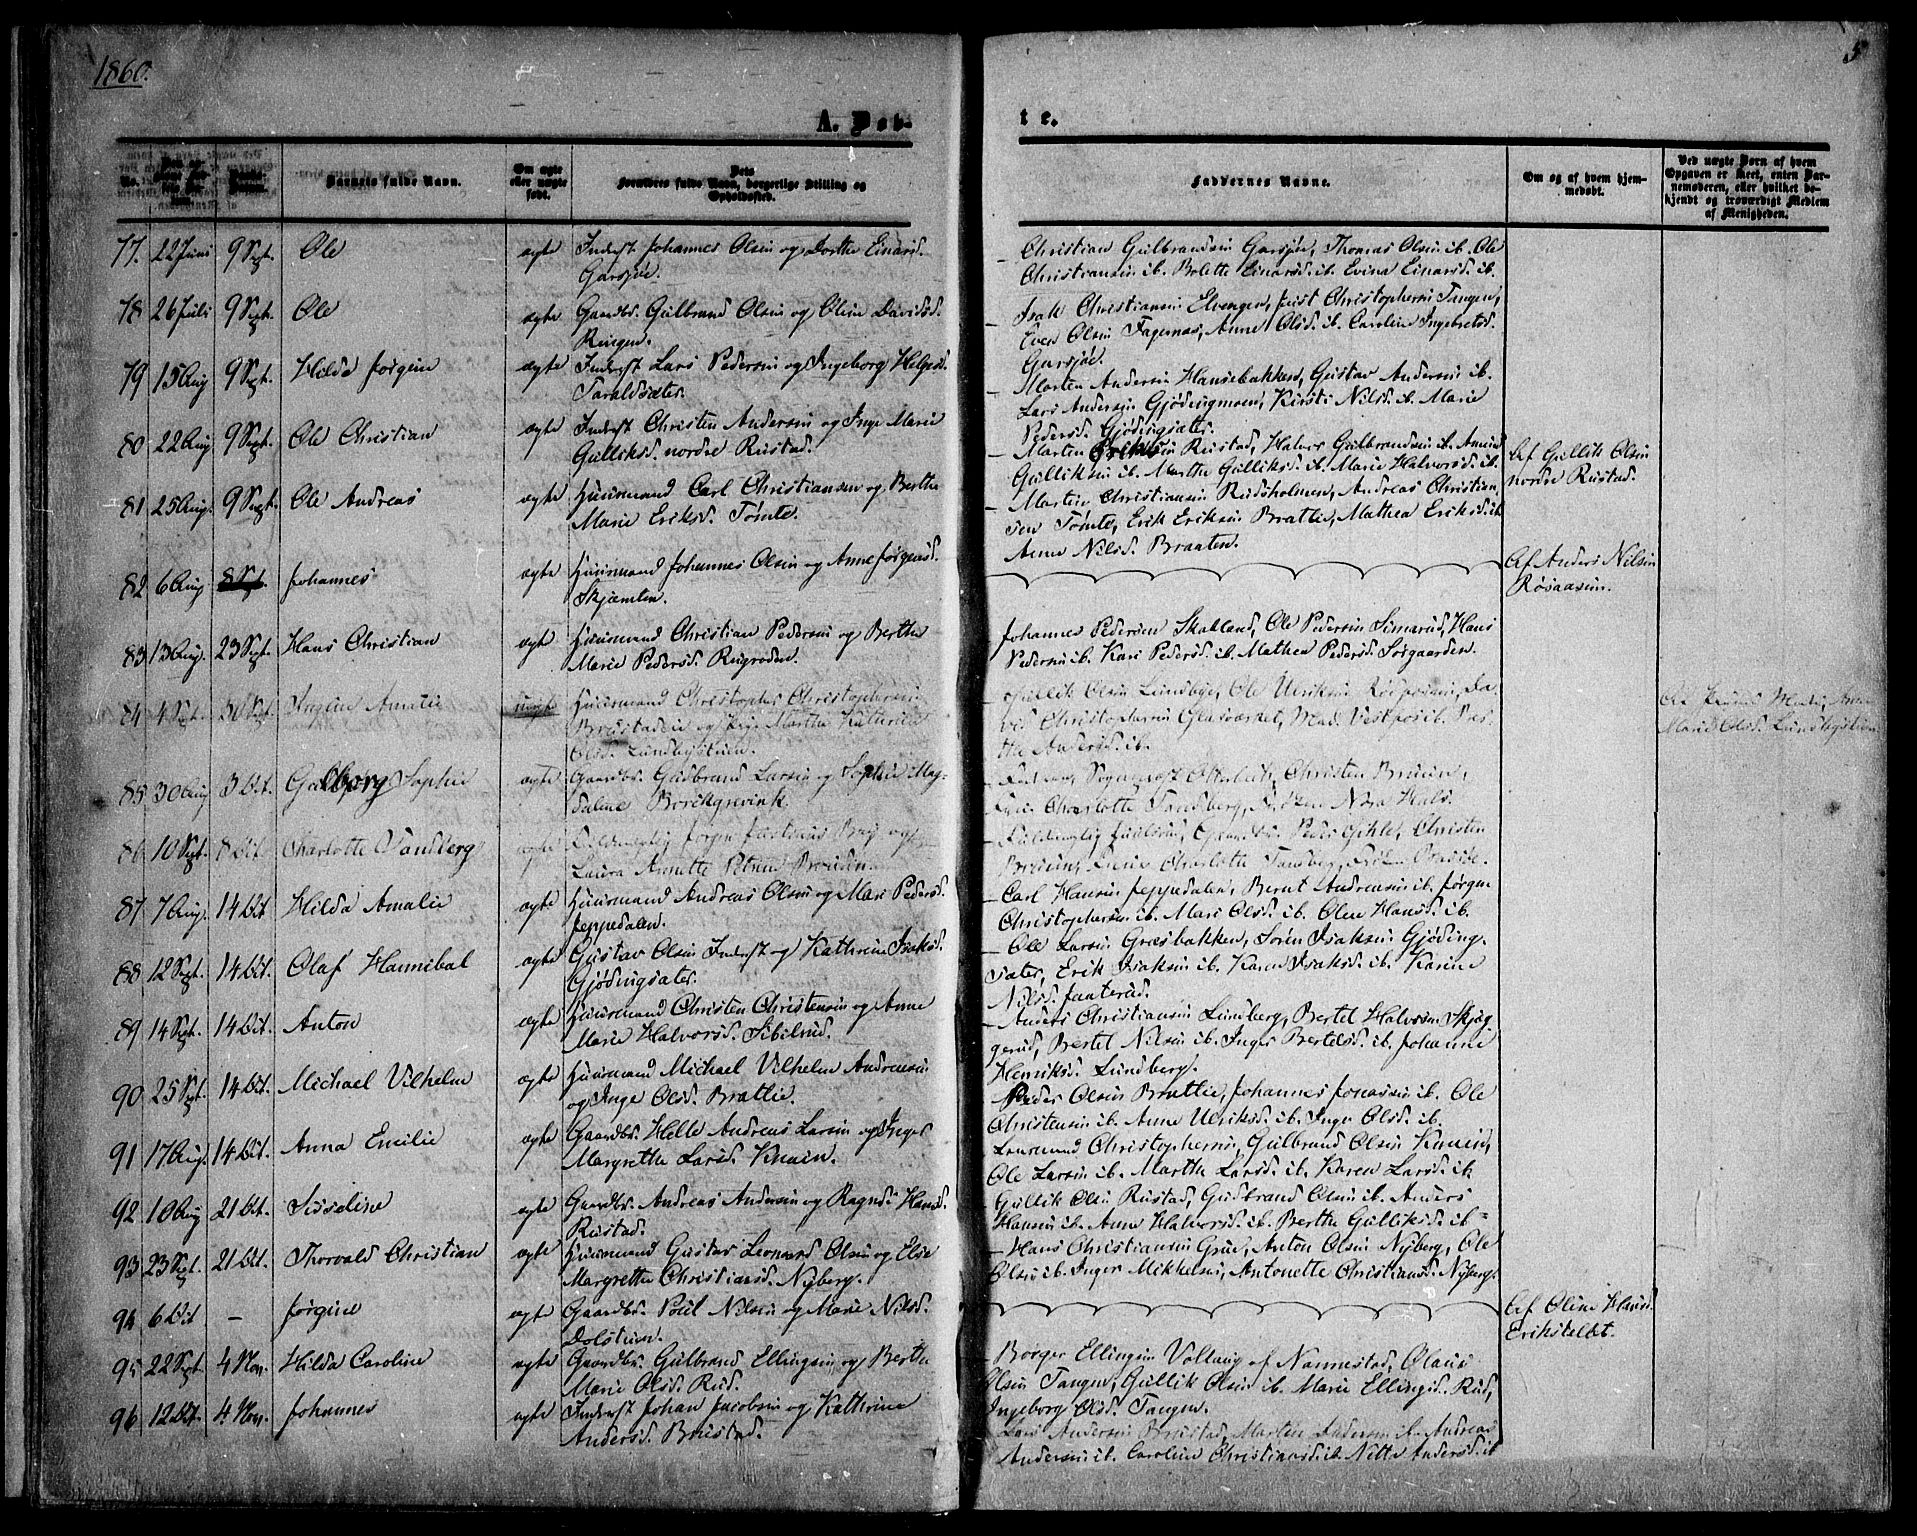 1860.
5
A. Døb-
te.
No.
Barnets fulde Navn.
Om ægte
eller uægte
født.
Dets
Forældres fulde Navn, borgerlige Stilling og
Opholdssted.
Faddernes Navne.
Om og af hvem hjem-
medøbt.
Ved uægte Børn af hvem
Opgaven er skeet, enten Bar-
nemoderen, eller hvilket be-
kjendt og troværdigt Medlem
af Menigheden.
77. 22 Juni 9 Sept. Ole ægte Inderst Johannes Olsen og Dorthe Einarsd.
Garsjøe.
Christian Gulbrandsen Garsjøe, Thomas Olsen ib. Ole
Christiansen ib. Bolette Einarsd. ib. Evina Einarsd. ib.
78 26 Juli 9 Sept. Ole ægte Gaardbr. Gulbrand Olsen og Oline Davidsd.
Ringen.
Isak Christiansen Elvengen, Christophersen Tangen,
Even Olsen Fagernæs, Anne Olsd. ib. Caroline Ingebretsd.
Garsjøe.
79 15 Aug 9 Sept. Hilda Jørgine ægte Inderst Lars Pedersen og Ingeborg Helgesd.
Taraldsæter.
Morten Andersen Hansebakken, Gustav Andersen ib.
Lars Andersen Gjødingmoen, Kirsti Nilsd. ib. Marie
Pedersd. Gjødingsæter.
80 22 Aug 9 Sept. Ole Christian ægte Inderst Christen Andersen og Inge Marie
Gulliksd. nordre Rustad.
Marten Eriksen Rustad, Halvor Gulbrandsen ib.
Gulliksen ib. Marthe Gulliksd. ib. Marie Halvorsd. ib.
Af Gullik Olsen
nordre Rustad.
81 25 Aug. 9 Sept. Ole Andreas ægte Huusmand Carl Christiansen og Berthe
Marie Eriksd. Tømte.
Martin Christiansen Rudsholmen, Andreas Christian-
sen Tømte, Erik Eriksen Brattie, Mathea Eriksd. ib.
Anne Nilsd. Braaten.
82 6 Aug Johannes ægte Huusmand Johannes Olsen og Anne Jørgensd.
Skjæmten.
Af Anders Nilsen
Røsaasen.
83 13 Aug. 23 Sept. Hans Christian ægte Huusmand Christian Pedersen og Berthe
Marie Pedersd. Rugroden.
Johannes Pedersen Skalland, Ole Pedersen Simarud, Hans
Pedersen ib. Kari Pedersd. ib. Mathea Pedersd. Sørgaarden.
84 4 Sept. 30 Sept. Amalie uægte Huusmand Christopher Christophersen
og Pige Marthe Kathrine
Olsd. Lundbystuen.
Gullik Olsen Lundbye, Ole Ulriksen Da-
vid Christophersen Glasværket,
the Andersd. ib.
Marie Olsd. Lundbystuen
85 30 Aug 3 Oct. Gulborg Sophie ægte Gaardbr. Gulbrand Larsen og Sophie Mag-
dalene Borchgrevink.
Christen Bruun,
Charlotte Tandberg,
86 10 Sept. 8 Oct. Charlotte Tandberg ægte
Laura Annette
Peder Gihle, Christen
Charlotte Tandberg,
87 7 Aug. 14 Oct Hilda Amalie ægte Huusmand Andreas Olsen og Mari Pedersd.
Jeppedalen.
Carl Hansen Jeppedalen, Bernt Andreasen ib. Jørgen
Christophersen ib. Mari Olsd. ib. Olene Hansd. ib.
88 12 Sept. 14 Oct. Olaf Hannibal ægte Gustav Olsen Inderst og Kathrine Isaksd.
Gjødingsæter.
Ole Larsen Græsbakken, Søren Isaksen Gjøding-
sæter, Erik Isaksen ib. Karen Isaksd. ib. Karine
Nilsd. Janterud.
89 14 Sept. 14 Oct. Anton ægte Huusmand Christen Christensen og Anne
Marie Halvorsd. Sibilrud.
Anders Christiansen Lundberg, Bertel Halvorsen Skjøg-
gerud, Bertel Nilsen ib. Inger Bertelsd. ib. Johanne
Henriksd. Lundberg.
90 25 Sept. 14 Oct. Michael Vilhelm ægte Huusmand Michael Vilhelm Andreasen
og Inge Olsd. Brattie.
Peder Olsen Brattie, Johannes Jonassen ib. Ole
Christensen ib. Anne Ulriksd. ib. Inge Olsd. ib.
91 17 Aug. 14 Oct. Anna Emilie ægte Gaardbr. Helle Andreas Larsen og Inger
Margrethe Larsd. Knain.
Christophersen, Gulbrand Olsen Knain,
Ole Larsen ib. Marthe Larsd. ib. Karen Larsd. ib.
92 10 Aug 21 Oct. Sisseline ægte Gaardbr. Andreas Andersen og Hansd.
Rustad.
Gullik Olsen Rustad, Gulbrand Olsen ib. Anders
Hansen ib. Anne Halvorsd. ib. Berthe Gulliksd. ib
93 23 Sept. 21 Oct. Thorvald Christian ægte Huusmand Gustav Leonard Olsen og Else
Margrethe Christiansd. Nyberg.
Hans Christiansen Grue, Anton Olsen Nyberg, Ole
Olsen ib. Inger Mikkelsen, Antonette Christiansd. Nyberg.
94 6 Oct - Jørgine ægte Gaardbr. Poul Nilsen og Marie Nilsd.
Dolstuen.
Af Oline Hansd.
95 22 Sept 4 Nov. Hilda Caroline ægte Gaardbr. Gulbrand Ellingsen og Berthe
Marie Olsd. Rud.
Borger Ellingsen Vollaug af Nannestad, Olaus
Olsen Tangen, Gullik Olsen ib. Marie Ellingsd. Rud,
Ingeborg Olsd. Tangen.
96 12 Oct. 4 Nov. Johannes ægte Inderst Johan Jacobsen og Kathrine
Andersd. Brustad.
Lars Andersen Brustad, Martin Andersen ib. Andreas
Andersen ib. Caroline Christiansd. ib. Nitte Andersd. ib